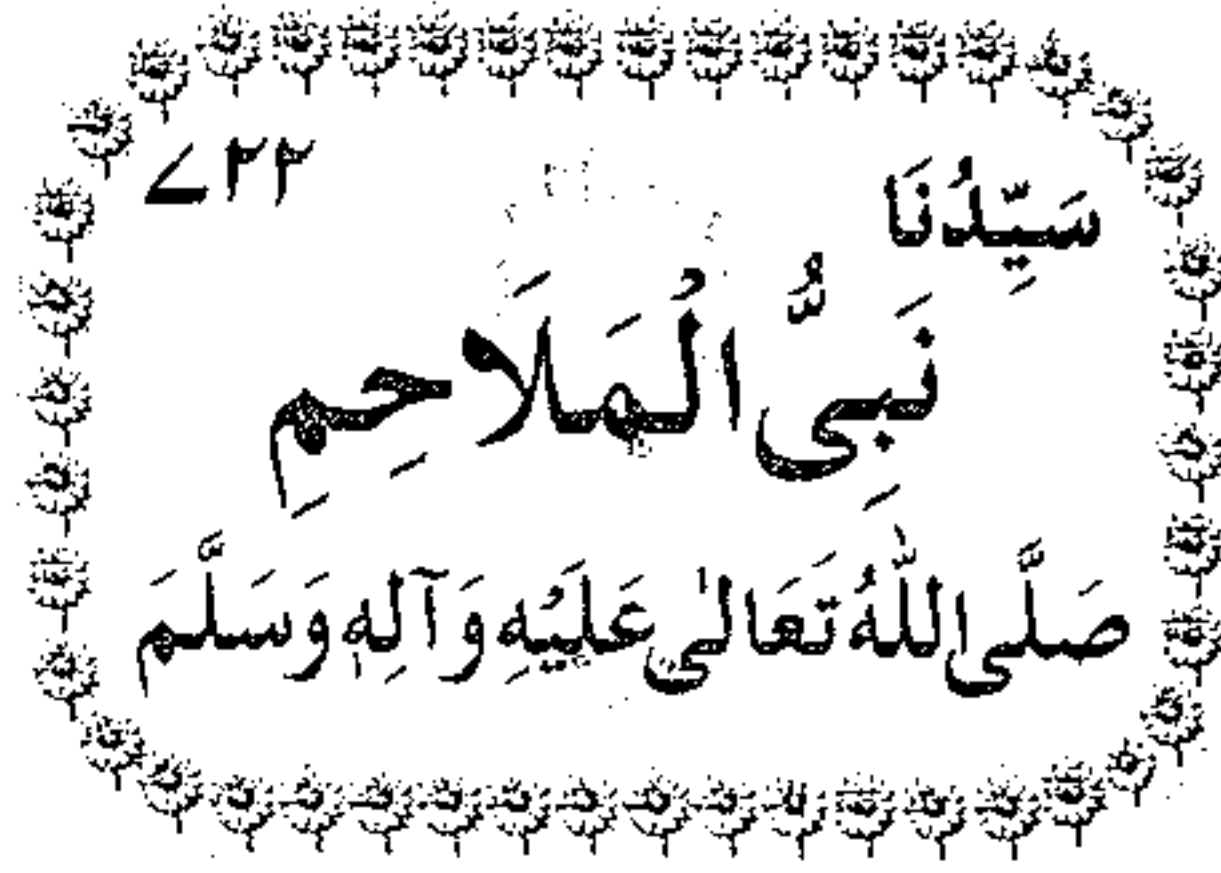 سَيِّدُنَا ٧٢٢
نَبِيُّ الْمَلَاحِمِ
صَلَّى اللّٰهُ تَعَالٰى عَلَيْهِ وَآلِهٖ وَسَلَّمَ